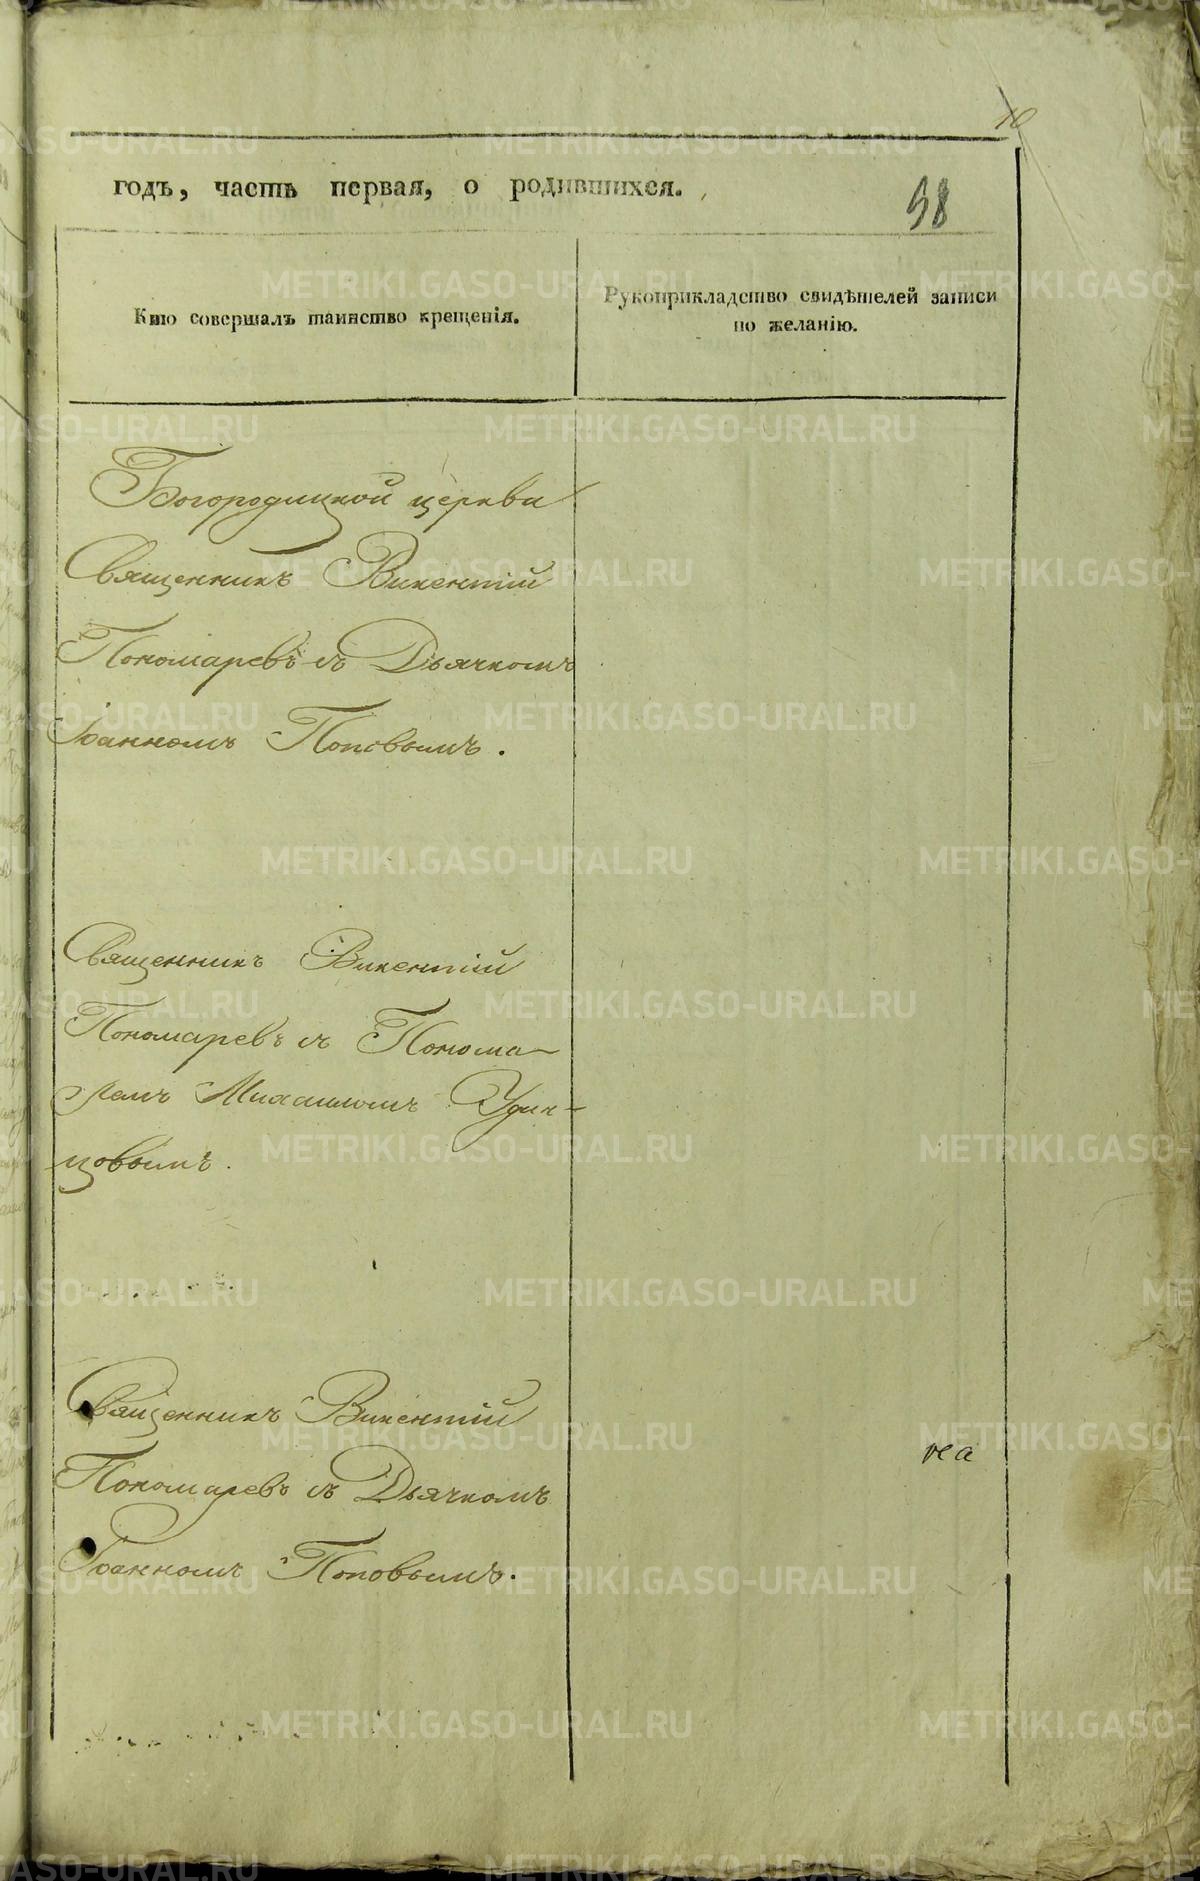 10
годъ, часть первая, о родившихся.
98
Кто совершалъ таинство крещенія.
Рукоприкладство свидѣтелей записи
по желанію.
Богородицкой церкви
Священникъ Викентій
Пономаревъ съ Дьячкомъ
Іоанномъ Поповымъ.
Священникъ Викентій
Пономаревъ съ Понома-
ремъ Михаиломъ Удин-
цовымъ.
Священникъ Викентій
Пономаревъ съ Дьячкомъ
Іоанномъ Поповымъ.
METRIKI.GASO-URAL.RU